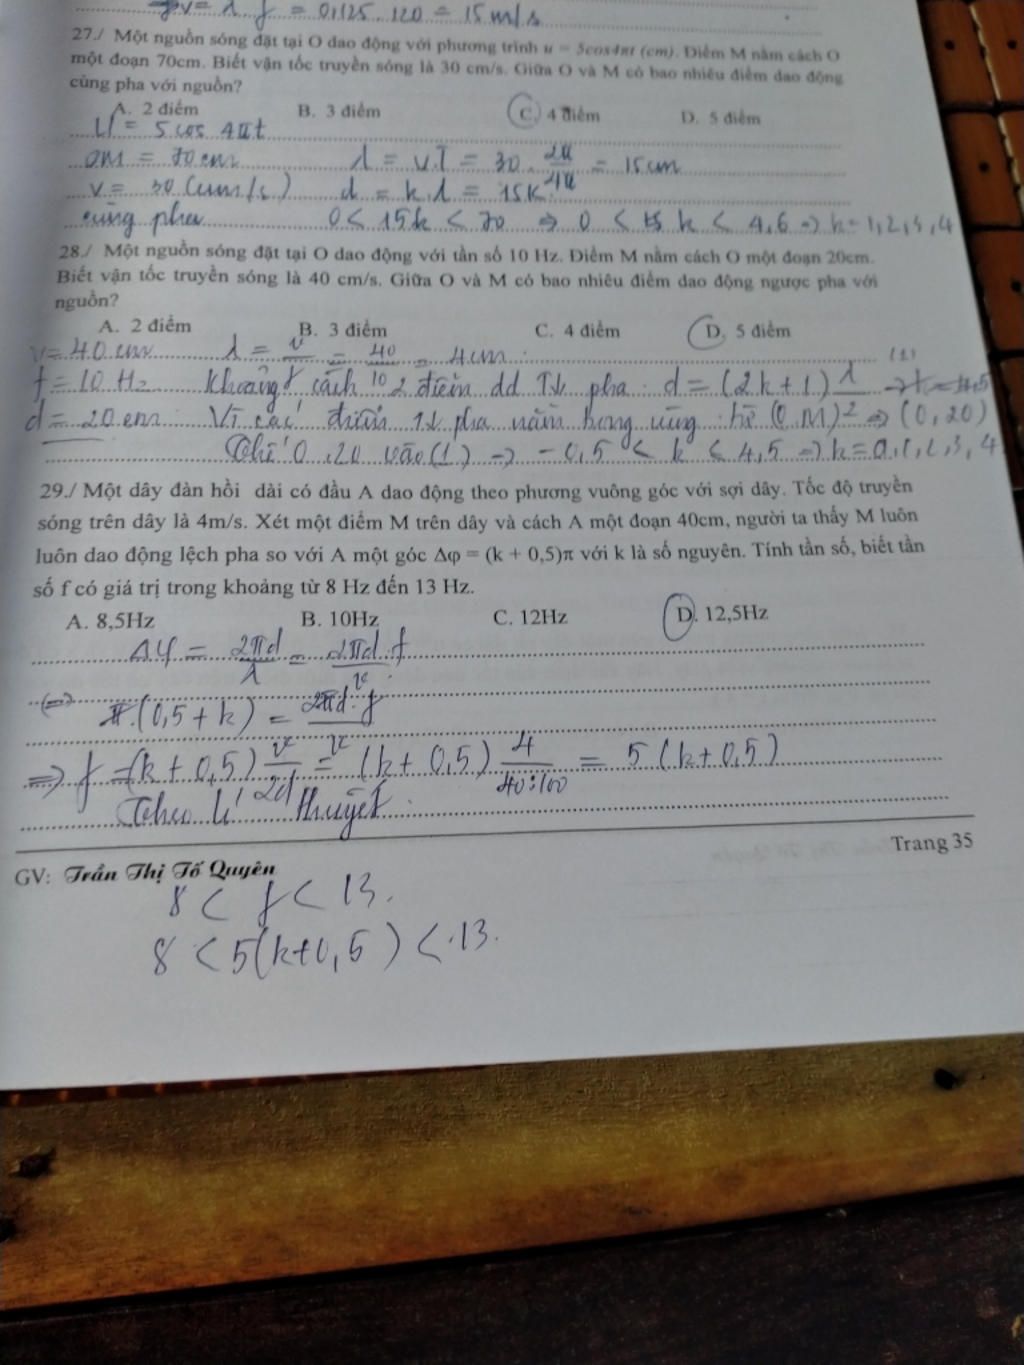 v = λ f = 0,125 . 120 = 15 m/s
27./ Một nguồn sóng đặt tại O dao động với phương trình u = 5cos4πt (cm). Điểm M nằm cách O
một đoạn 70cm. Biết vận tốc truyền sóng là 30 cm/s. Giữa O và M có bao nhiêu điểm dao động
cùng pha với nguồn?
A. 2 điểm B. 3 điểm C. 4 điểm D. 5 điểm
U = 5 cos 4πt
OM = 70 cm λ = v.T = 30 . 2π/4π = 15 cm
v = 30 (cm/s) d = k.λ = 15k
cùng pha 0 < 15k < 70 => 0 < k < 4,6 => k = 1,2,3,4
28./ Một nguồn sóng đặt tại O dao động với tần số 10 Hz. Điểm M nằm cách O một đoạn 20cm.
Biết vận tốc truyền sóng là 40 cm/s. Giữa O và M có bao nhiêu điểm dao động ngược pha với
nguồn?
A. 2 điểm B. 3 điểm C. 4 điểm D. 5 điểm
v = 40 cm λ = v/f = 40/10 = 4 cm (1)
f = 10 Hz Khoảng cách 2 điểm dd pha : d = (2k+1) λ/2
d = 20 cm Vì các điểm pha nằm trong vùng từ (O, M) => (0, 20)
Thế 0, 20 vào (1) => -0,5 < k < 4,5 => k = 0,1,2,3,4
29./ Một dây đàn hồi dài có đầu A dao động theo phương vuông góc với sợi dây. Tốc độ truyền
sóng trên dây là 4m/s. Xét một điểm M trên dây và cách A một đoạn 40cm, người ta thấy M luôn
luôn dao động lệch pha so với A một góc Δφ = (k + 0,5)π với k là số nguyên. Tính tần số, biết tần
số f có giá trị trong khoảng từ 8 Hz đến 13 Hz.
A. 8,5Hz B. 10Hz C. 12Hz D. 12,5Hz
Δφ = 2πd/λ = 2πd.f/v
(=) π.(0,5 + k) = 2πd.f/v
=> f = (k + 0,5) v/2d = (k + 0,5) 4/40:100 = 5 (k + 0,5)
Theo lí thuyết :
Trang 35
GV: Trần Thị Tố Quyên
8 < f < 13.
8 < 5(k+0,5) < 13.